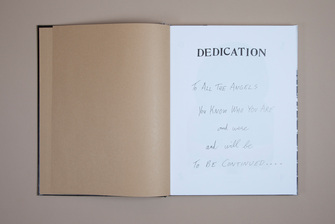 DEDICATION
To All The Angels
You Know Who You Are
and were
and will be
To Be Continued.....